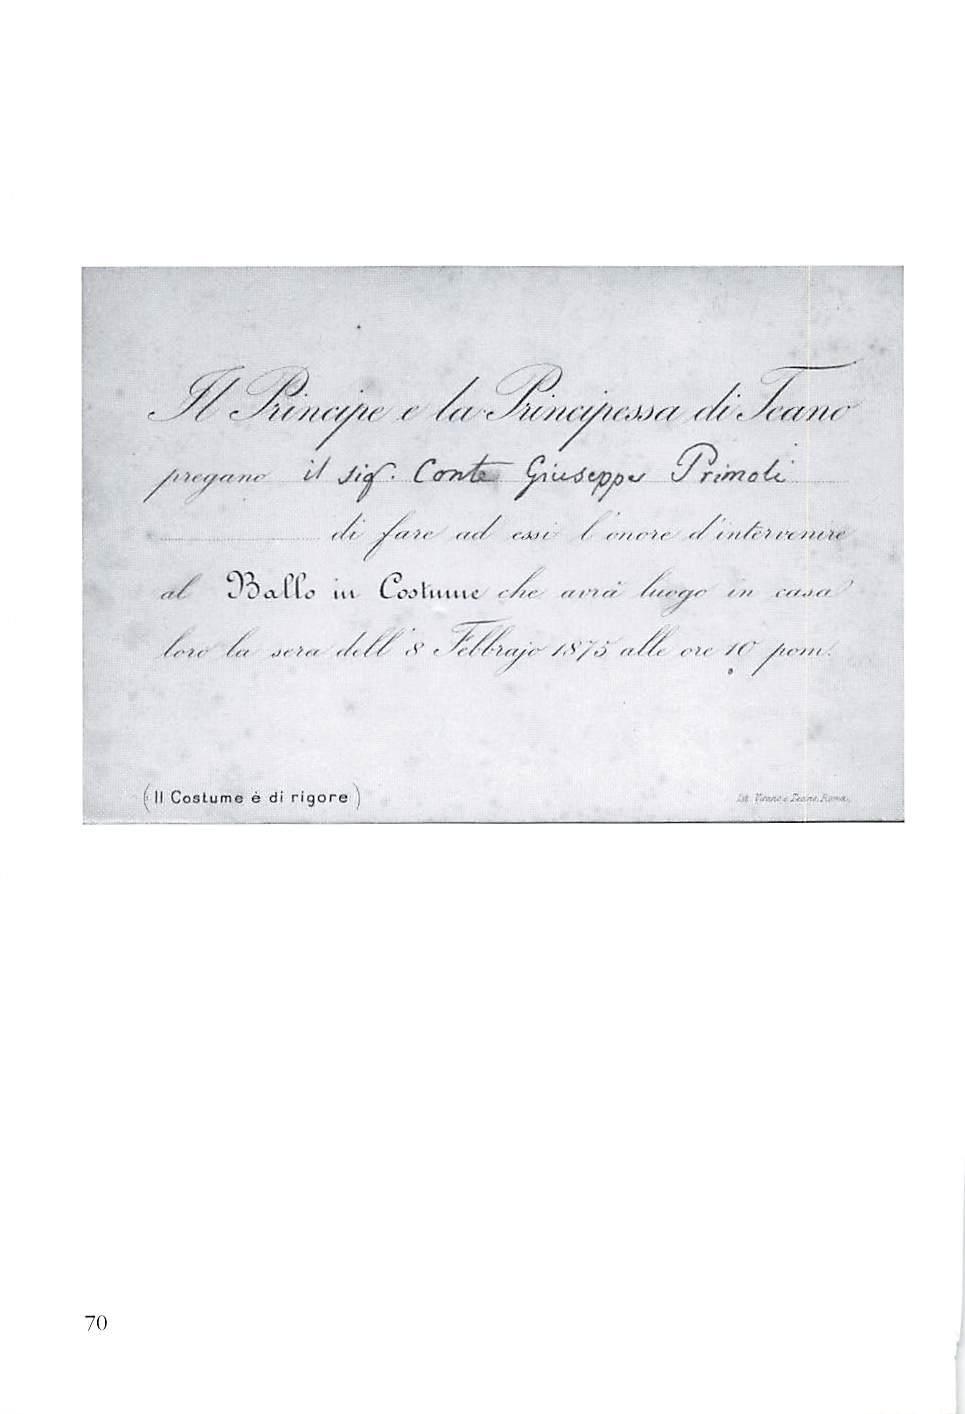 Il Principe e la Principessa di Teano
pregano il sig. Conte Giuseppe Primoli
di fare ad essi l'onore d'intervenire
al Ballo in Costume che avrà luogo in casa
loro la sera dell' 8 Febbrajo 1875 alle ore 10 pom.
(Il Costume è di rigore)
Roma.
70